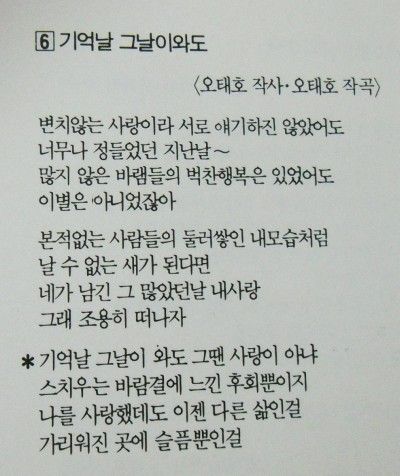 6 기억날 그날이와도
〈오태호 작사·오태호 작곡〉
변치않는 사랑이라 서로 얘기하진 않았어도
너무나 정들었던 지난날~
많지 않은 바램들의 벅찬행복은 있었어도
이별은 아니었잖아
본적없는 사람들의 둘러쌓인 내모습처럼
날 수 없는 새가 된다면
네가 남긴 그 많았던날 내사랑
그래 조용히 떠나자
* 기억날 그날이 와도 그땐 사랑이 아냐
스치우는 바람결에 느낀 후회뿐이지
나를 사랑했데도 이젠 다른 삶인걸
가리워진 곳에 슬픔뿐인걸